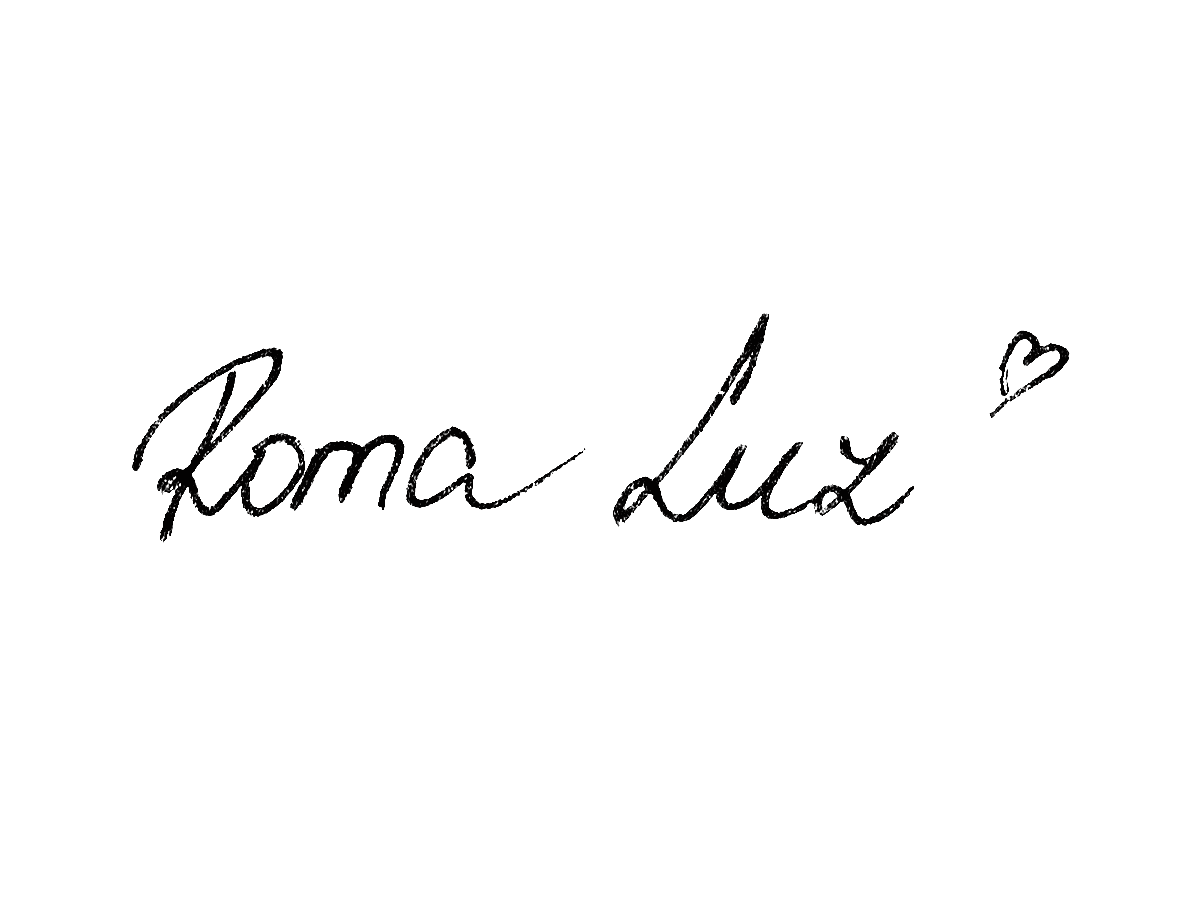 Roma Luz ♡